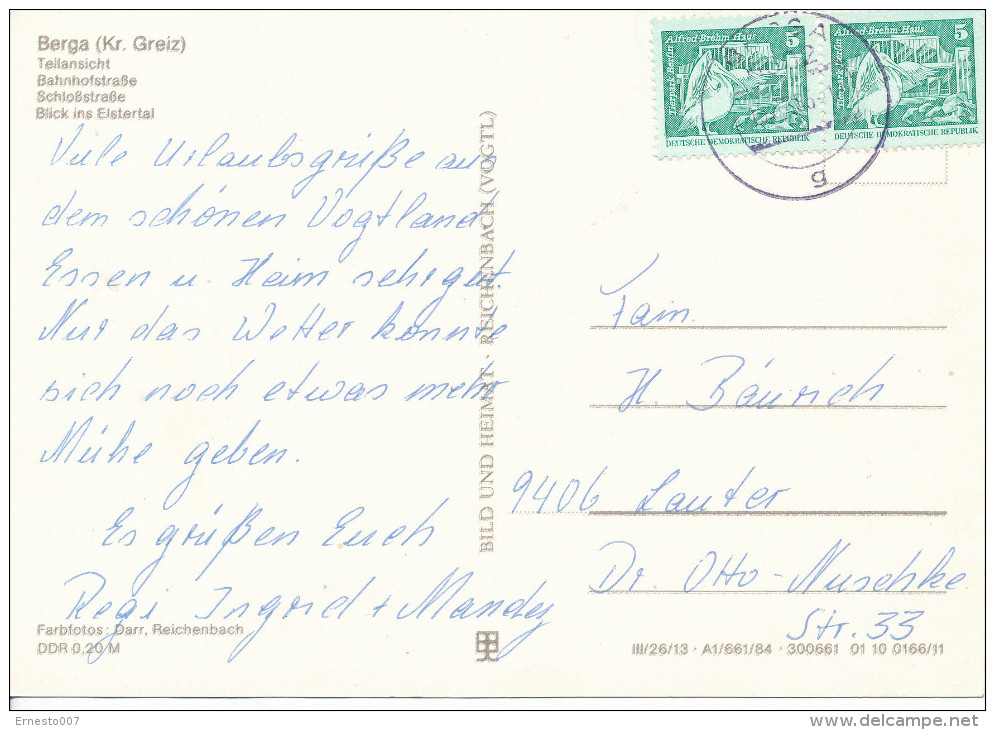 Berga (Kr. Greiz)
Teilansicht
Bahnhofstraße
Schloßstraße
Blick ins Elstertal
Viele Urlaubsgrüße aus
dem schönen Vogtland
Essen u. Heim sehr gut
Nur das Wetter könnte
sich noch etwas mehr
Mühe geben.
Es grüßen Euch
Regi Ingrid + Mandy
Farbfotos: Darr, Reichenbach
DDR 0,20 M
BILD UND HEIMAT · REICHENBACH (VOGTL)
Tierpark Berlin
Alfred-Brehm-Haus
5
DEUTSCHE DEMOKRATISCHE REPUBLIK
Tierpark Berlin
Alfred-Brehm-Haus
5
DEUTSCHE DEMOKRATISCHE REPUBLIK
g
Fam.
H. Bäurich
9406 Lauter
Dr. Otto-Nuschke
Str. 33
III/26/13 · A1/661/84 · 300661 01 10 0166/11
Ernesto007
delcampe.net